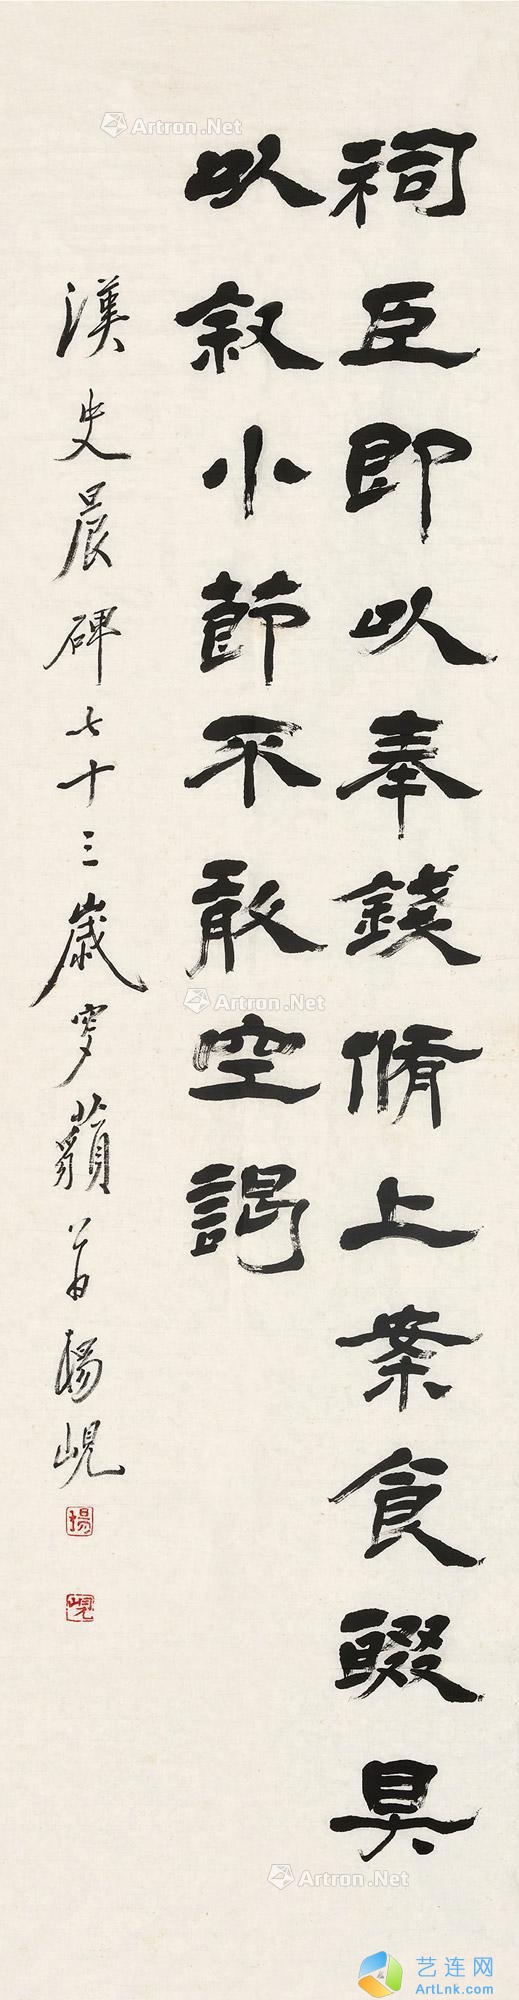 Artron.Net
祠臣即以奉錢脩上案食醊具
以叙小節不敢空謁
漢史晨碑七十三歲叟藐翁楊峴
楊
峴
Artron.Net
Artron.Net
Artron.Net
艺连网
ArtLnk.com